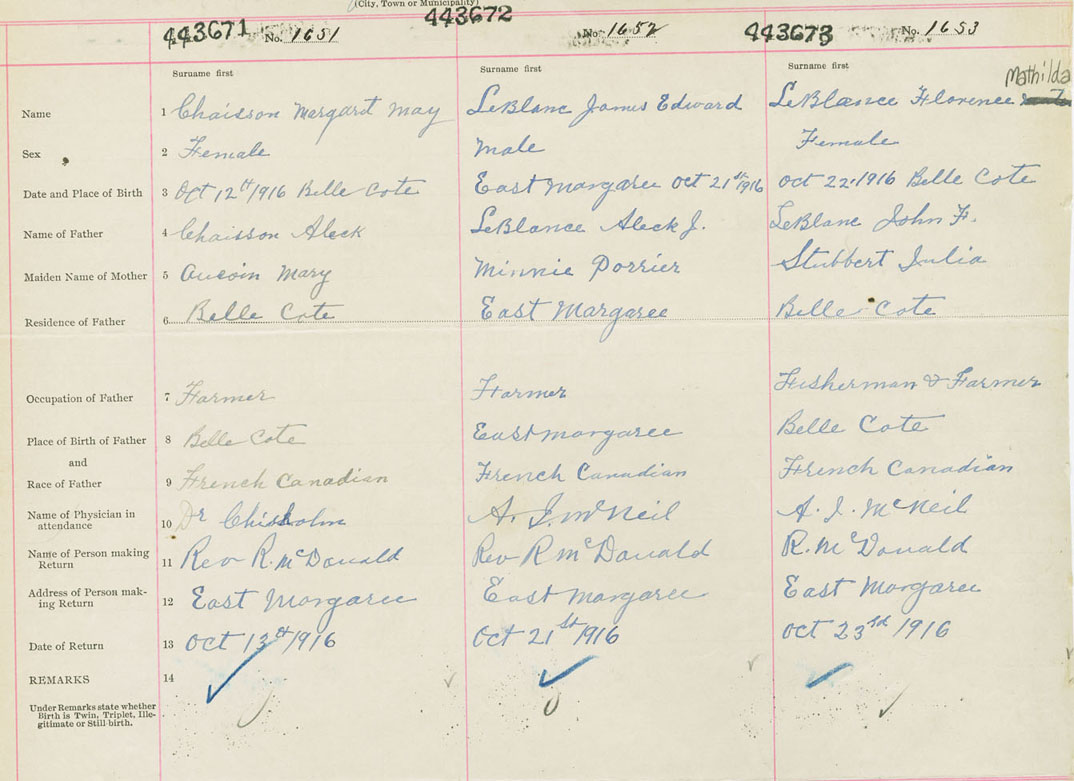 (City, Town or Municipality)
443671 No. 1651 443672 No. 1652 443673 No. 1653
Surname first Surname first Surname first
Mathilda
Name 1 Chaisson Margart May LeBlanc James Edward LeBlance Florence
Sex 2 Female Male Female
Date and Place of Birth 3 Oct 12th/1916 Belle Cote East Margaree Oct 21st/1916 Oct 22.1916 Belle Cote
Name of Father 4 Chaisson Aleck LeBlance Aleck J. LeBlanc John F.
Maiden Name of Mother 5 Aucoin Mary Minnie Porrier Stubbert Julia
Residence of Father 6 Belle Cote East Margaree Belle Cote
Occupation of Father 7 Farmer Farmer Fisherman & Farmer
Place of Birth of Father 8 Belle Cote East Margaree Belle Cote
and
Race of Father 9 French Canadian French Canadian French Canadian
Name of Physician in
attendance 10 Dr Chisholm A. J. McNeil A. J. McNeil
Name of Person making
Return 11 Rev R. McDonald Rev R McDonald R. McDonald
Address of Person mak-
ing Return 12 East Margaree East Margaree East Margaree
Date of Return 13 Oct 13th/1916 Oct 21st/1916 Oct 23rd 1916
REMARKS 14
Under Remarks state whether
Birth is Twin, Triplet, Ille-
gitimate or Still-birth.